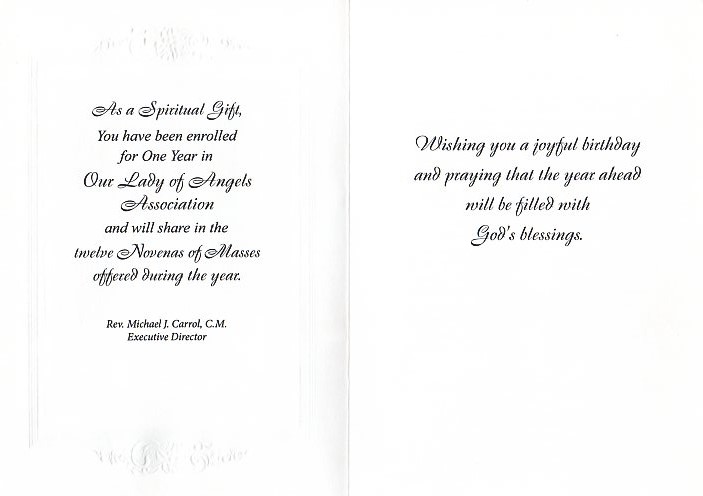 As a Spiritual Gift,
You have been enrolled
for One Year in
Our Lady of Angels
Association
and will share in the
twelve Novenas of Masses
offered during the year.
Rev. Michael J. Carrol, C.M.
Executive Director
Wishing you a joyful birthday
and praying that the year ahead
will be filled with
God's blessings.